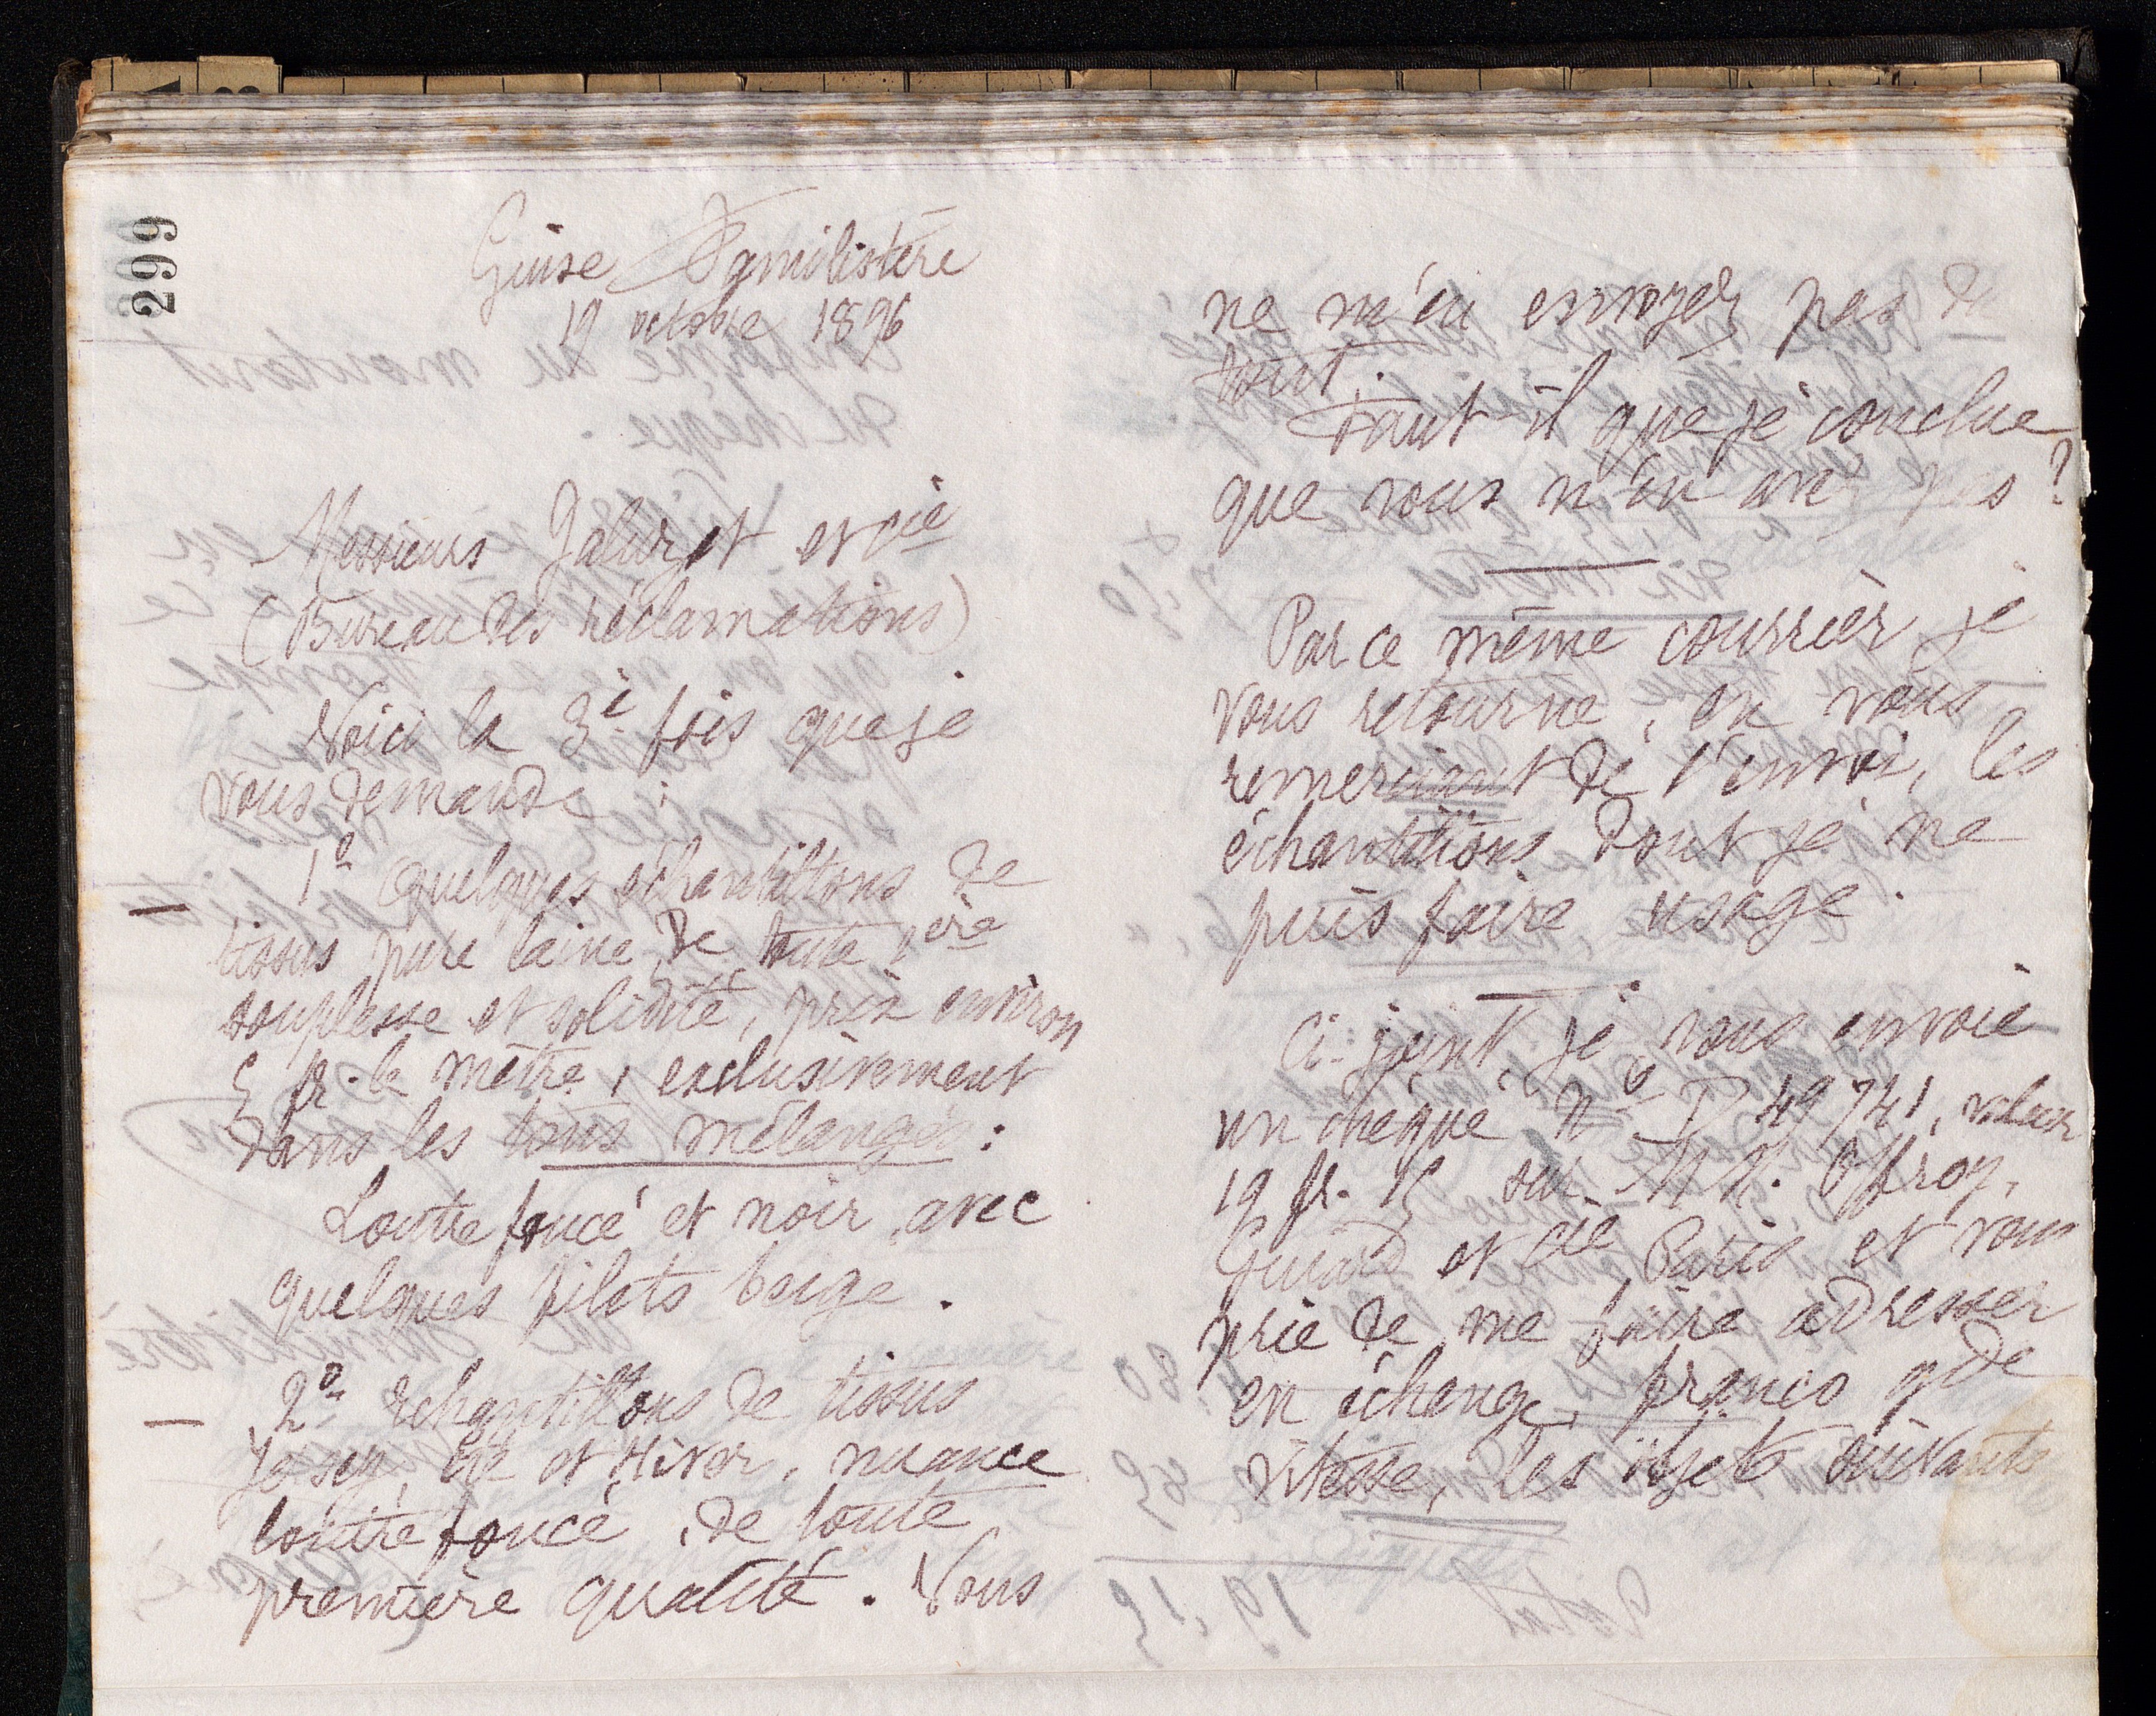 299
Guise Familistère
19 octobre 1896
Messieurs Jaluzot et cie
(Bureau des réclamations)
Voici la 3e fois que je
vous demande :
1o Quelques échantillons de
tissus pure laine, de toute 1ère
souplesse et solidité, prix environ
5 fr. le mètre, exclusivement
dans les tons mélangés :
Loutre foncé et noir, avec
quelques filets beige.
2o Echantillons de tissus
Jersey, été et Hiver, nuance
loutre foncé, de toute
première qualité. Vous
ne m'en envoyez pas du
tout.
Faut-il que je conclue
que vous n'en avez pas ?
Par ce même courrier je
vous retourne, en vous
remerciant de l'envoi, les
échantillons dont je ne
puis faire usage.
Ci-joint, je vous envoie
un chèque no P 49741, valeur
19 fr. 15 sur MM. Offroy,
Guiard et cie, Paris et vous
prie de me faire adresser
en échange, franco gde
vitesse, les objets suivants